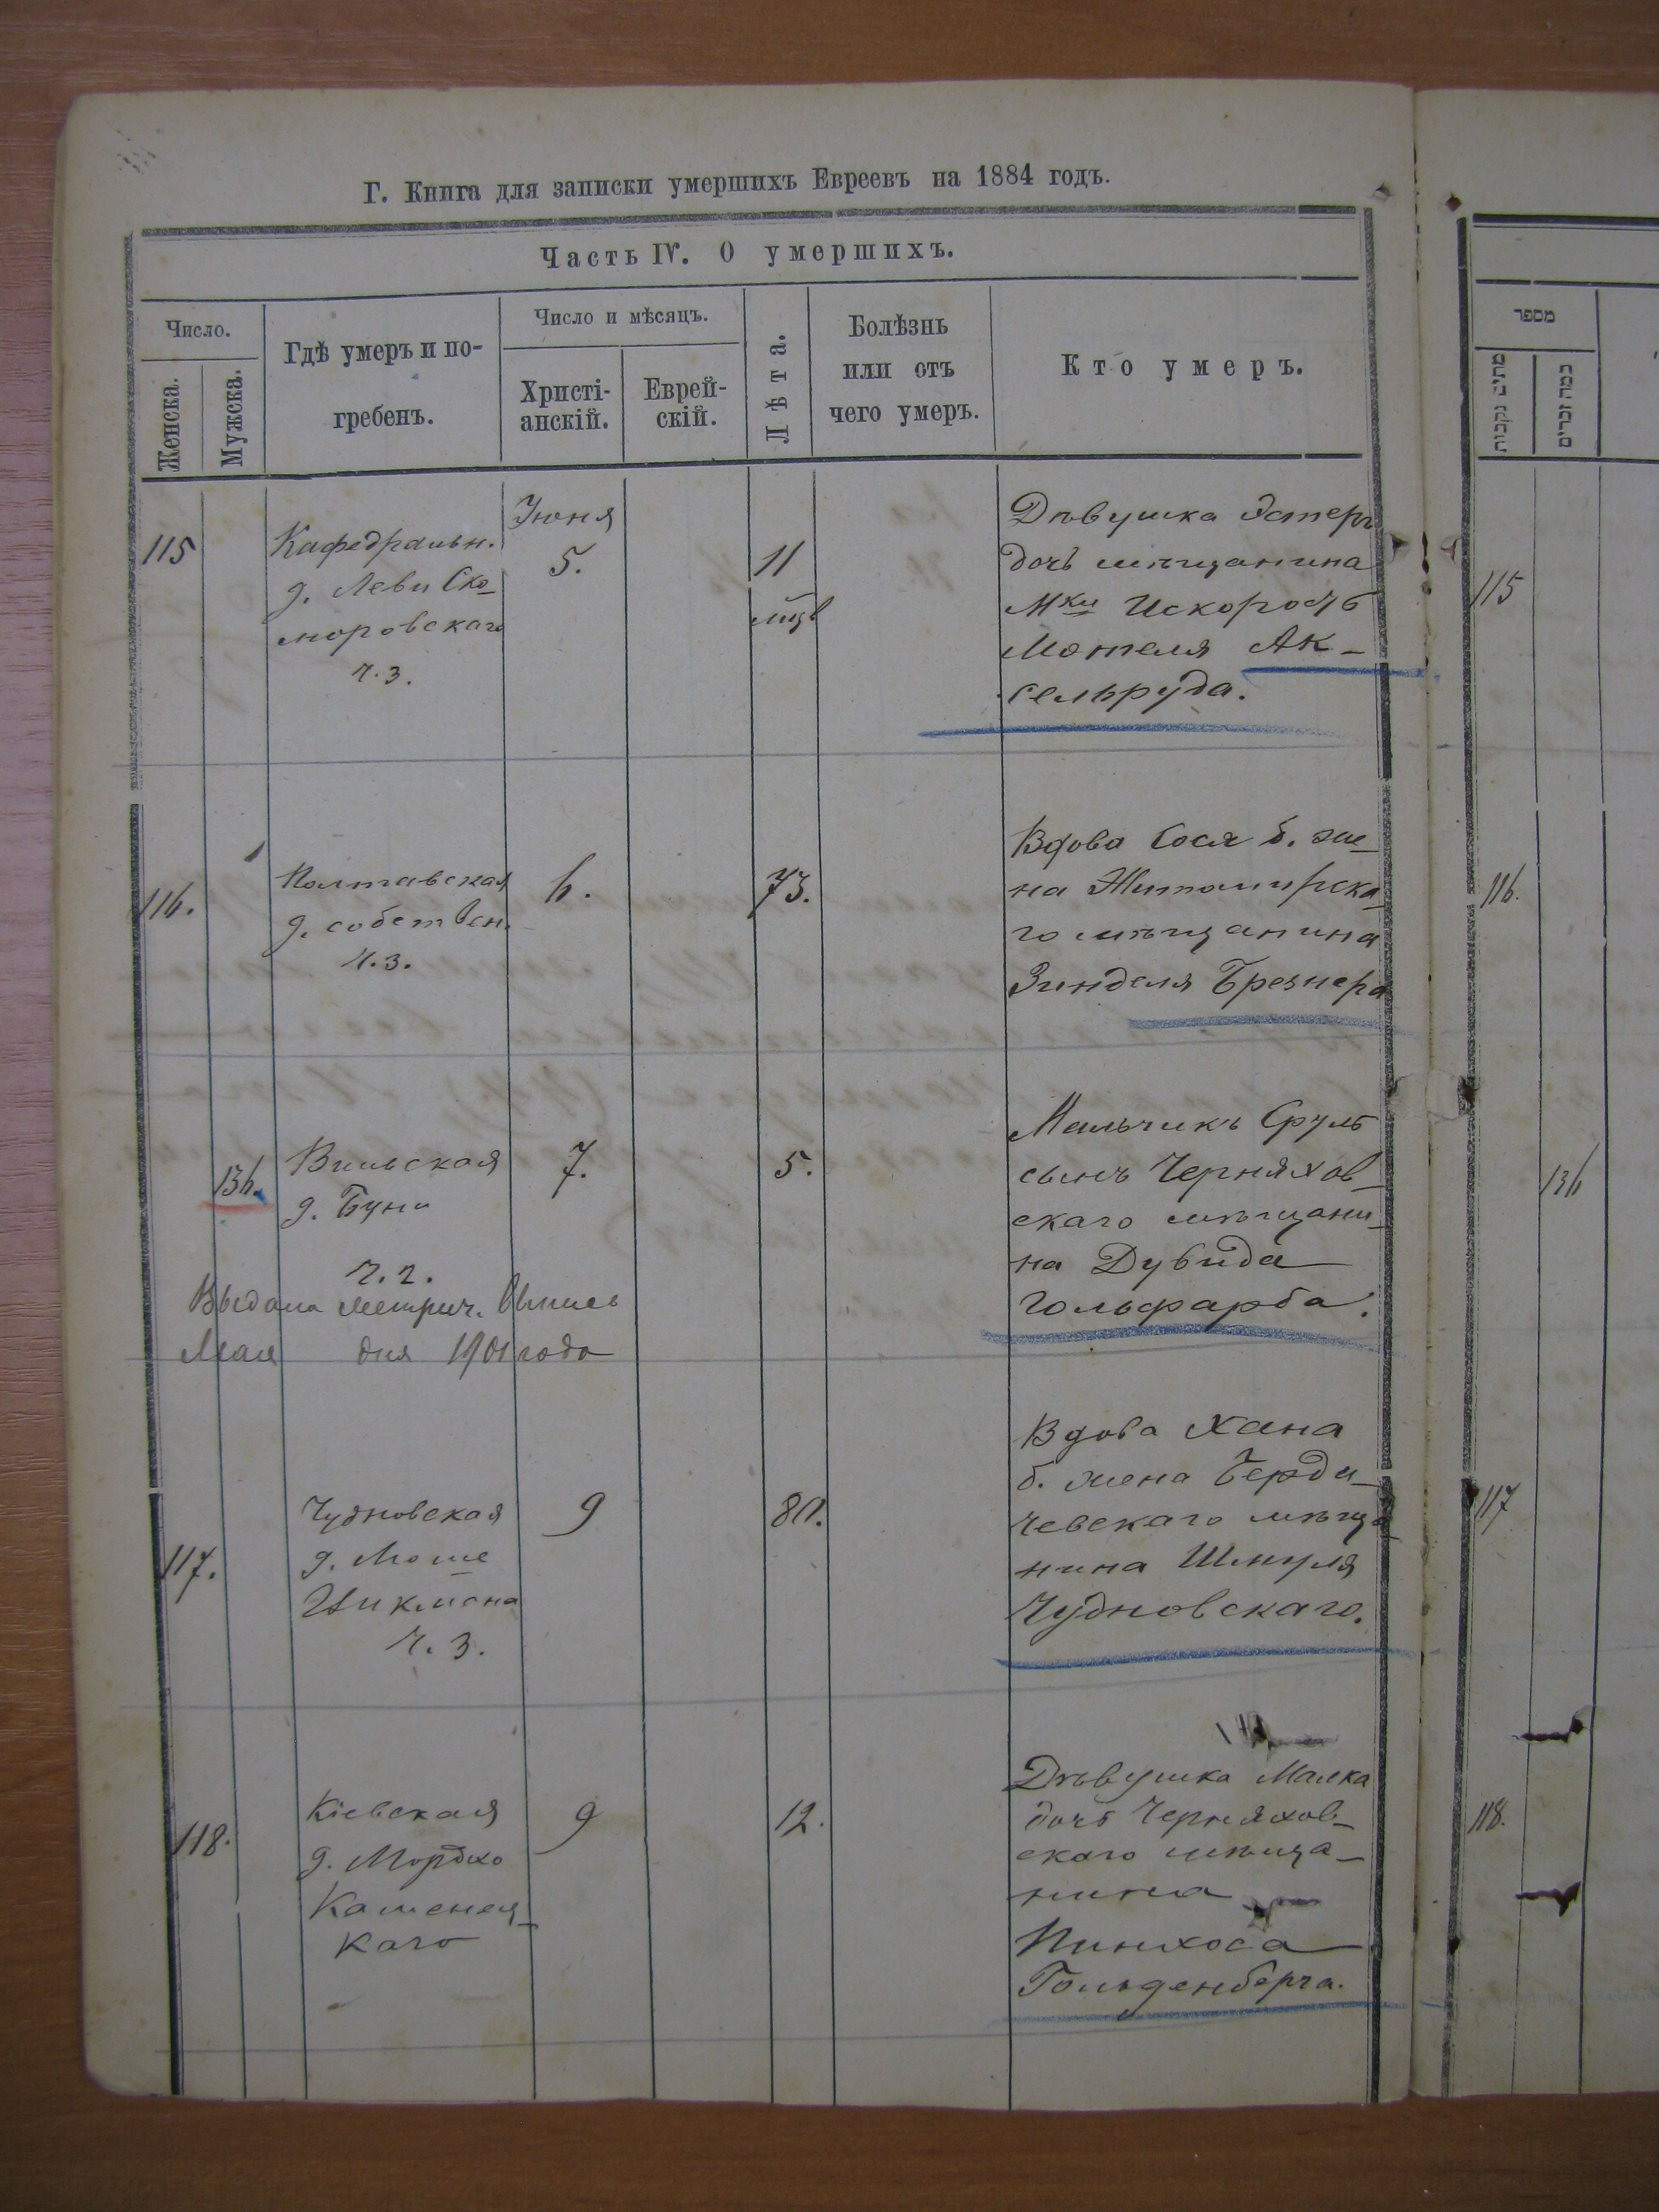 Г. Книга для записки умершихъ Евреевъ на 1884 годъ.
Часть IV. О умершихъ.
Число.
Женска.
Мужска.
Гдѣ умеръ и по-
гребенъ.
Число и мѣсяцъ.
Христі-
анскій.
Еврей-
скій.
Лѣта.
Болѣзнь
или отъ
чего умеръ.
Кто умеръ.
115
Кафедральн.
д. Леви Ско-
моровскаго
ч. 3.
Іюня
5.
11
мцв
Дѣвушка Эстеръ
дочь мѣщанина
Мки Искорость
Мотеля Ак-
сельруда.
116.
Полтавская
д. собствен.
ч. 3.
6.
73.
Вдова Сося б. же-
на Житомирска-
го мѣщанина
Зинделя Брезнера
136.
Вильская
д. Буни
ч. 2.
7.
5.
Мальчикъ Сруль
сынъ Черняхов-
скаго мѣщани-
на Дувида
Гольфарба.
Выдана метрич. выпись
Мая дня 1901 года
117.
Чудновская
д. Моше
Цикмана
ч. 3.
9
80.
Вдова Хана
б. жена Берди-
чевскаго мѣща-
нина Шмуля
Чудновскаго.
118.
Кіевская
д. Мордко
Каменец-
каго
9
12.
Дѣвушка Малка
дочь Черняхов-
скаго мѣща-
нина
Пинхоса
Гольденберга.
מספר
כמה זכרים
115
116.
136
117
118.